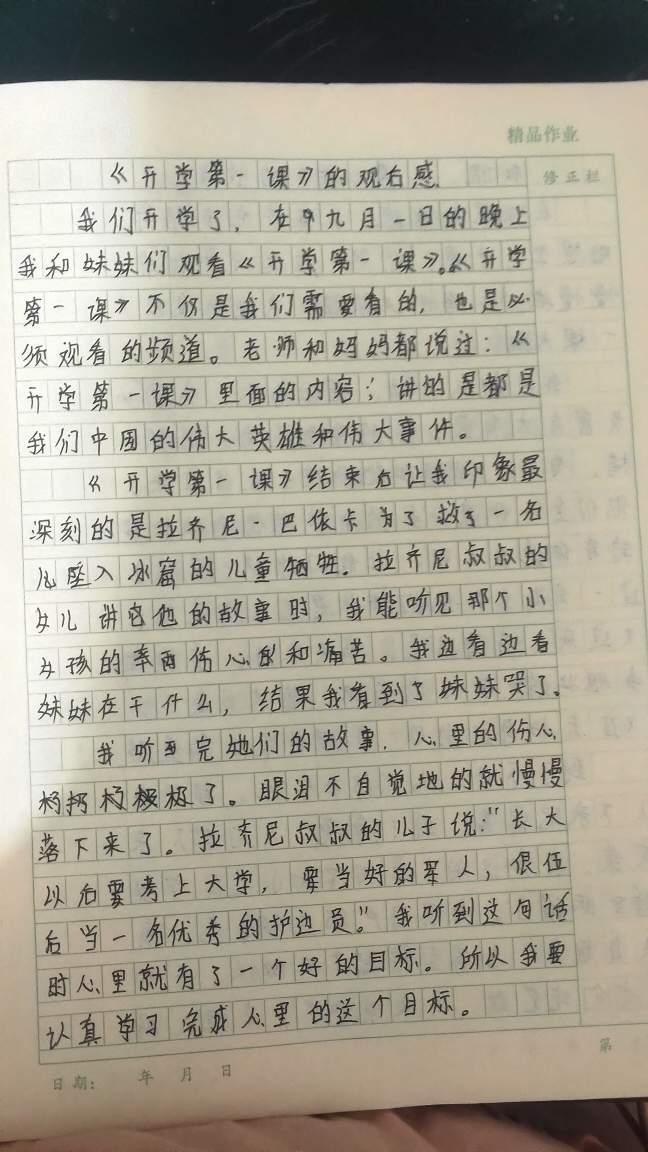 精品作业
修正栏
《开学第一课》的观右感
我们开学了，在九月一日的晚上
我和妹妹们观看《开学第一课》。《开学
第一课》不仅是我们需要看的，也是必
须观看的频道。老师和妈妈都说过：《
开学第一课》里面的内容；讲的是都是
我们中国的伟大英雄和伟大事件。
《开学第一课》结束右让我印象最
深刻的是拉齐尼·巴依卡为了救了一名
儿座入冰窟的儿童牺牲．拉齐尼叔叔的
女儿讲他的故事时，我能听见那个小
女孩的伤心和痛苦。我边看边看
妹妹在干什么，结果我看到了妹妹哭了。
我听完她们的故事．心里的伤心
极了。眼泪不自觉地的就慢慢
落下来了。拉齐尼叔叔的儿子说："长大
以右要考上大学，要当好的军人，退伍
右当一名优秀的护边员。"我听到这句话
时心里就有了一个好的目标。所以我要
认真学习完成心里的这个目标。
第
日期：　年　月　日